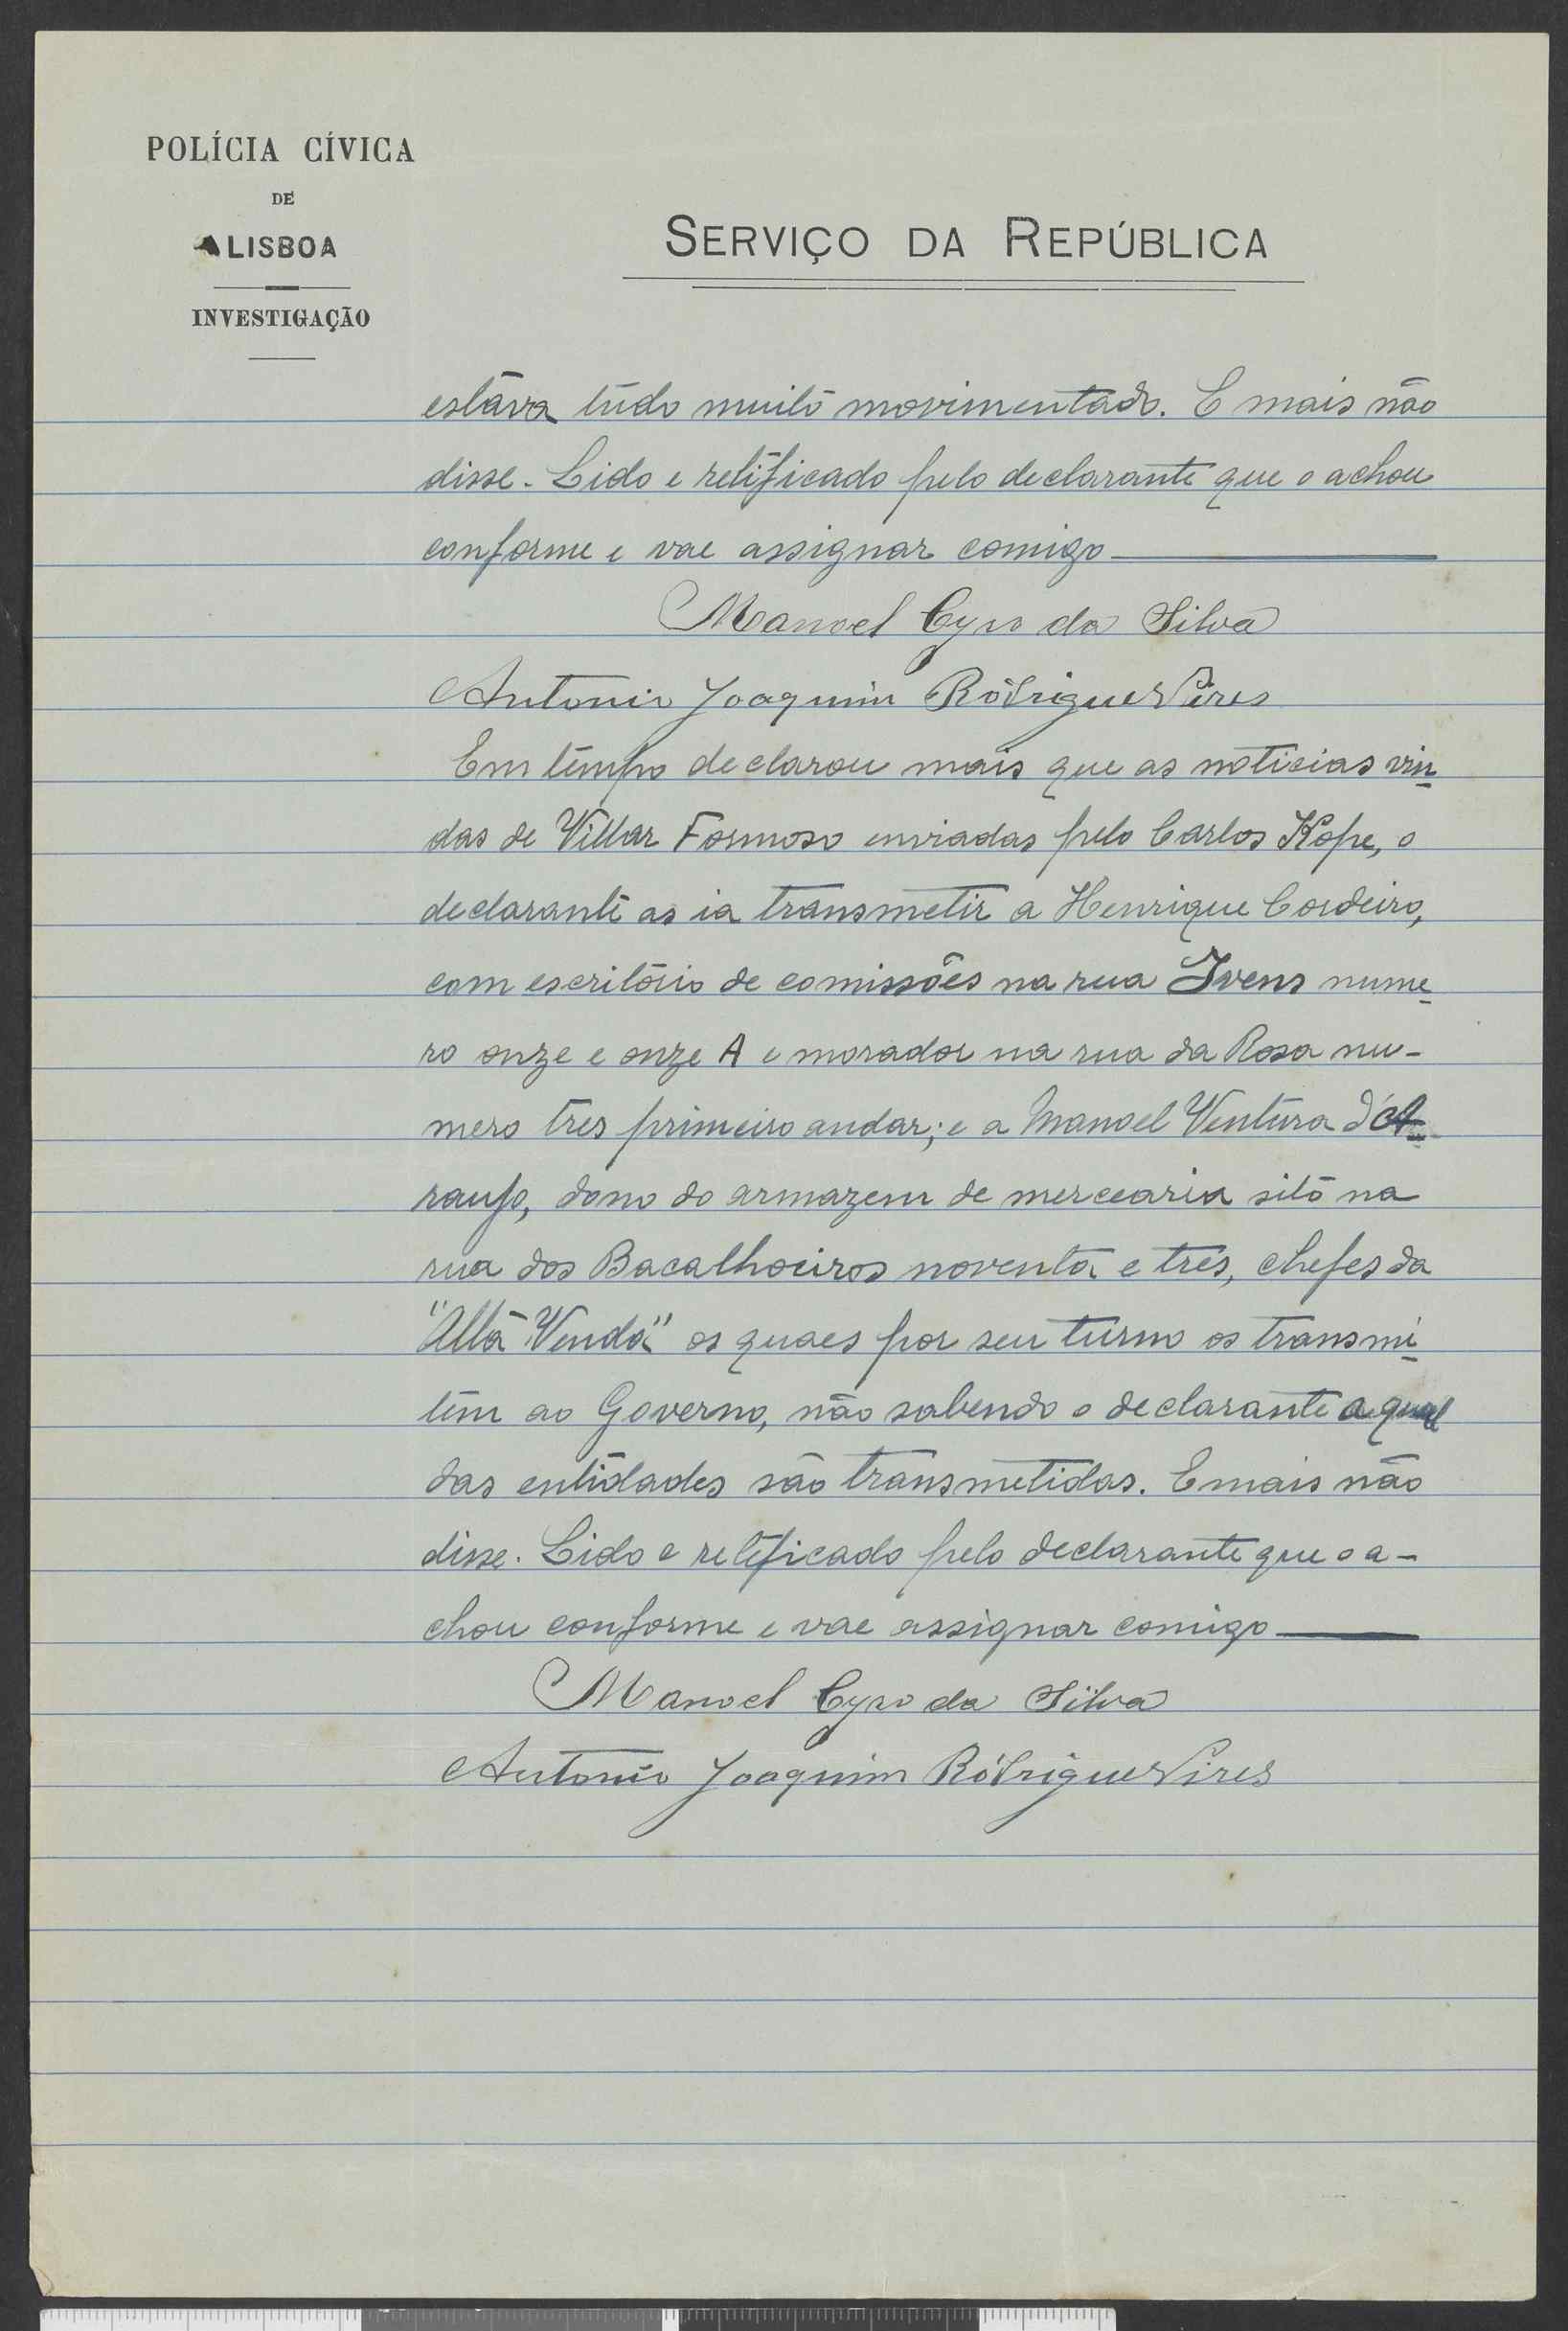 POLÍCIA CÍVICA
DE
LISBOA
INVESTIGAÇÃO
SERVIÇO DA REPÚBLICA
estáva tudo muito movimentado. E mais não
disse. Lido e retificado pelo declarante que o achou
conforme e vae assignar comigo
Manoel Cyro da Silva
Antonio Joaquim Rodrigues Pires
Em tempo declarou mais que as noticias vin
das de Villar Formoso enviadas pelo Carlos Kope, o
declarante as ia transmetir a Henrique Cordeiro,
com escritório de comissões na rua Ivens nume
ro onze e onze A e morador na rua da Rosa nu-
mero tres primeiro andar; e a Manoel Ventura d'A
raujo, dono do armazem de mercearia sito na
rua dos Bacalhoeiros noventa e tres, chefes da
"Alta Venda" os quaes por seu turno os transmi
tem ao Governo, não sabendo o declarante a qual
das entidades são transmetidas. E mais não
disse. Lido e retificado pelo declarante que o a-
chou conforme e vae assignar comigo
Manoel Cyro da Silva
Antonio Joaquim Rodrigues Pires